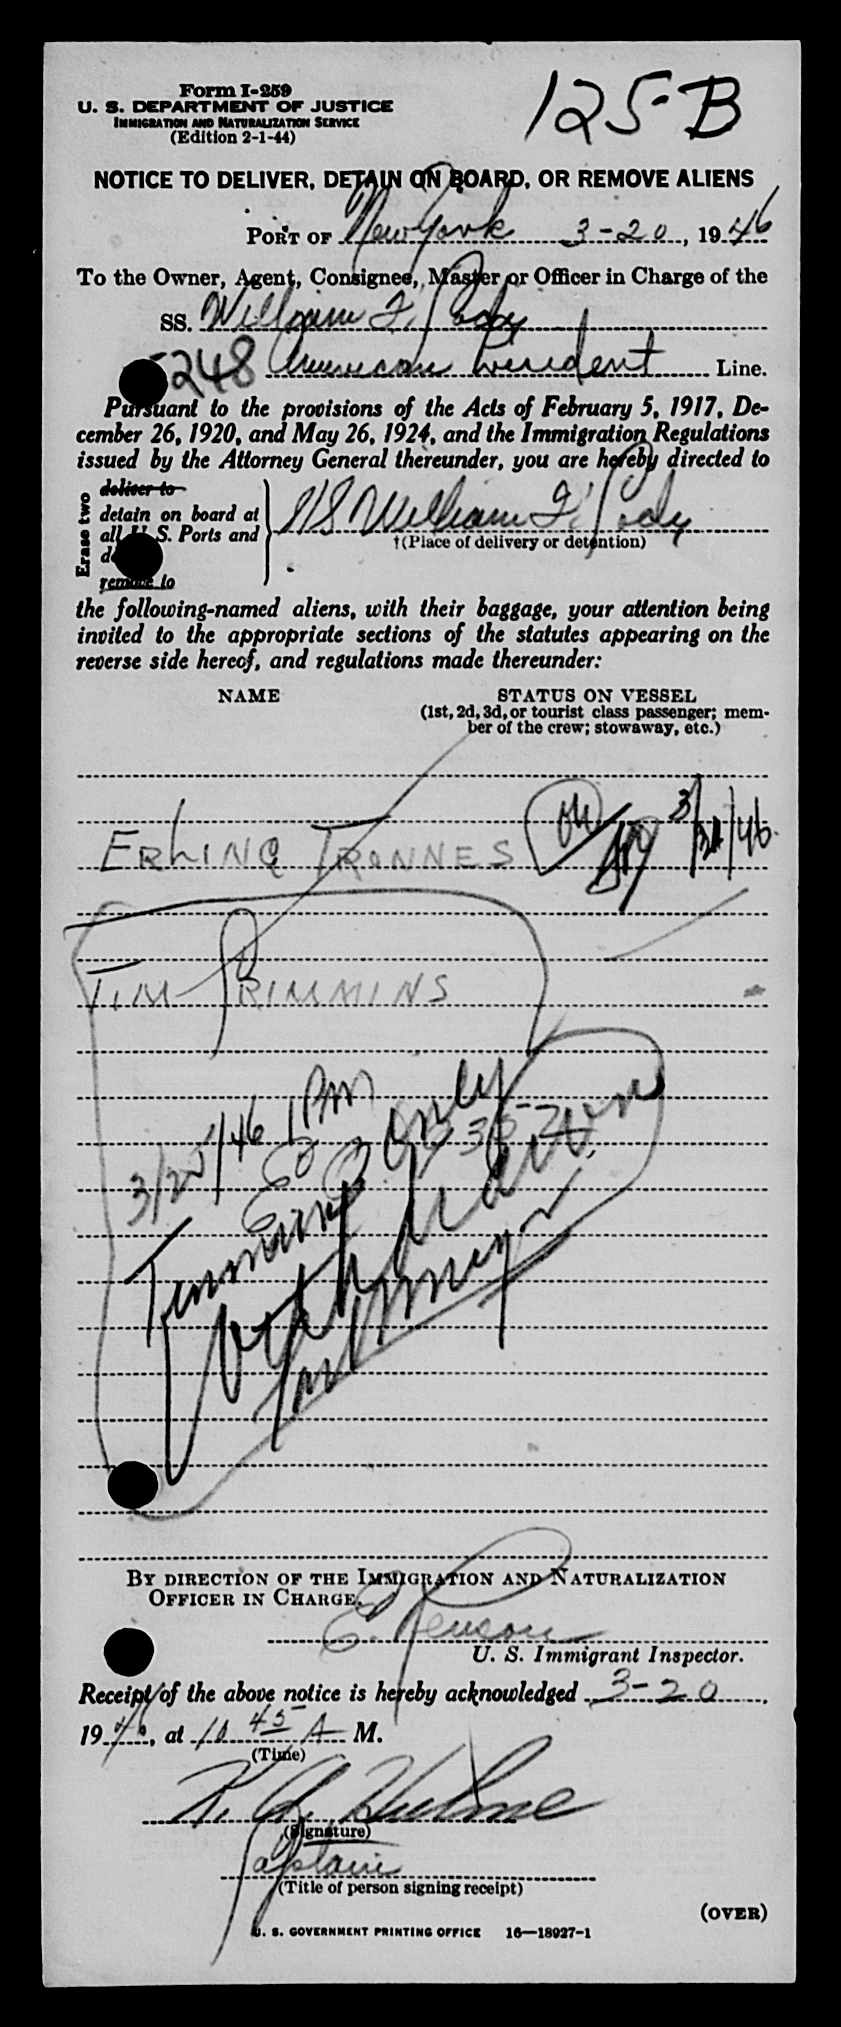 Form I-259
U. S. DEPARTMENT OF JUSTICE
IMMIGRATION AND NATURALIZATION SERVICE
(Edition 2-1-44)
125-B
NOTICE TO DELIVER, DETAIN ON BOARD, OR REMOVE ALIENS
PORT OF New York 3-20, 1946
To the Owner, Agent, Consignee, Master or Officer in Charge of the
SS. William F. Cody
5248 American President Line.
Pursuant to the provisions of the Acts of February 5, 1917, De-
cember 26, 1920, and May 26, 1924, and the Immigration Regulations
issued by the Attorney General thereunder, you are hereby directed to
Erase two
deliver to
detain on board at
all U. S. Ports and
remove to
SS William F. Cody
†(Place of delivery or detention)
the following-named aliens, with their baggage, your attention being
invited to the appropriate sections of the statutes appearing on the
reverse side hereof, and regulations made thereunder:
NAME STATUS ON VESSEL
(1st, 2d, 3d, or tourist class passenger; mem-
ber of the crew; stowaway, etc.)
ERLING TRONNES OK 3/21/46
TIM PRIMMINS
3/25/46 1 PM
only
BY DIRECTION OF THE IMMIGRATION AND NATURALIZATION
OFFICER IN CHARGE.
U. S. Immigrant Inspector.
Receipt of the above notice is hereby acknowledged 3-20,
1946, at 10 45 A M.
(Time)
K. A. Hulme
(Signature)
Captain
(Title of person signing receipt)
(OVER)
U. S. GOVERNMENT PRINTING OFFICE 16—18927-1